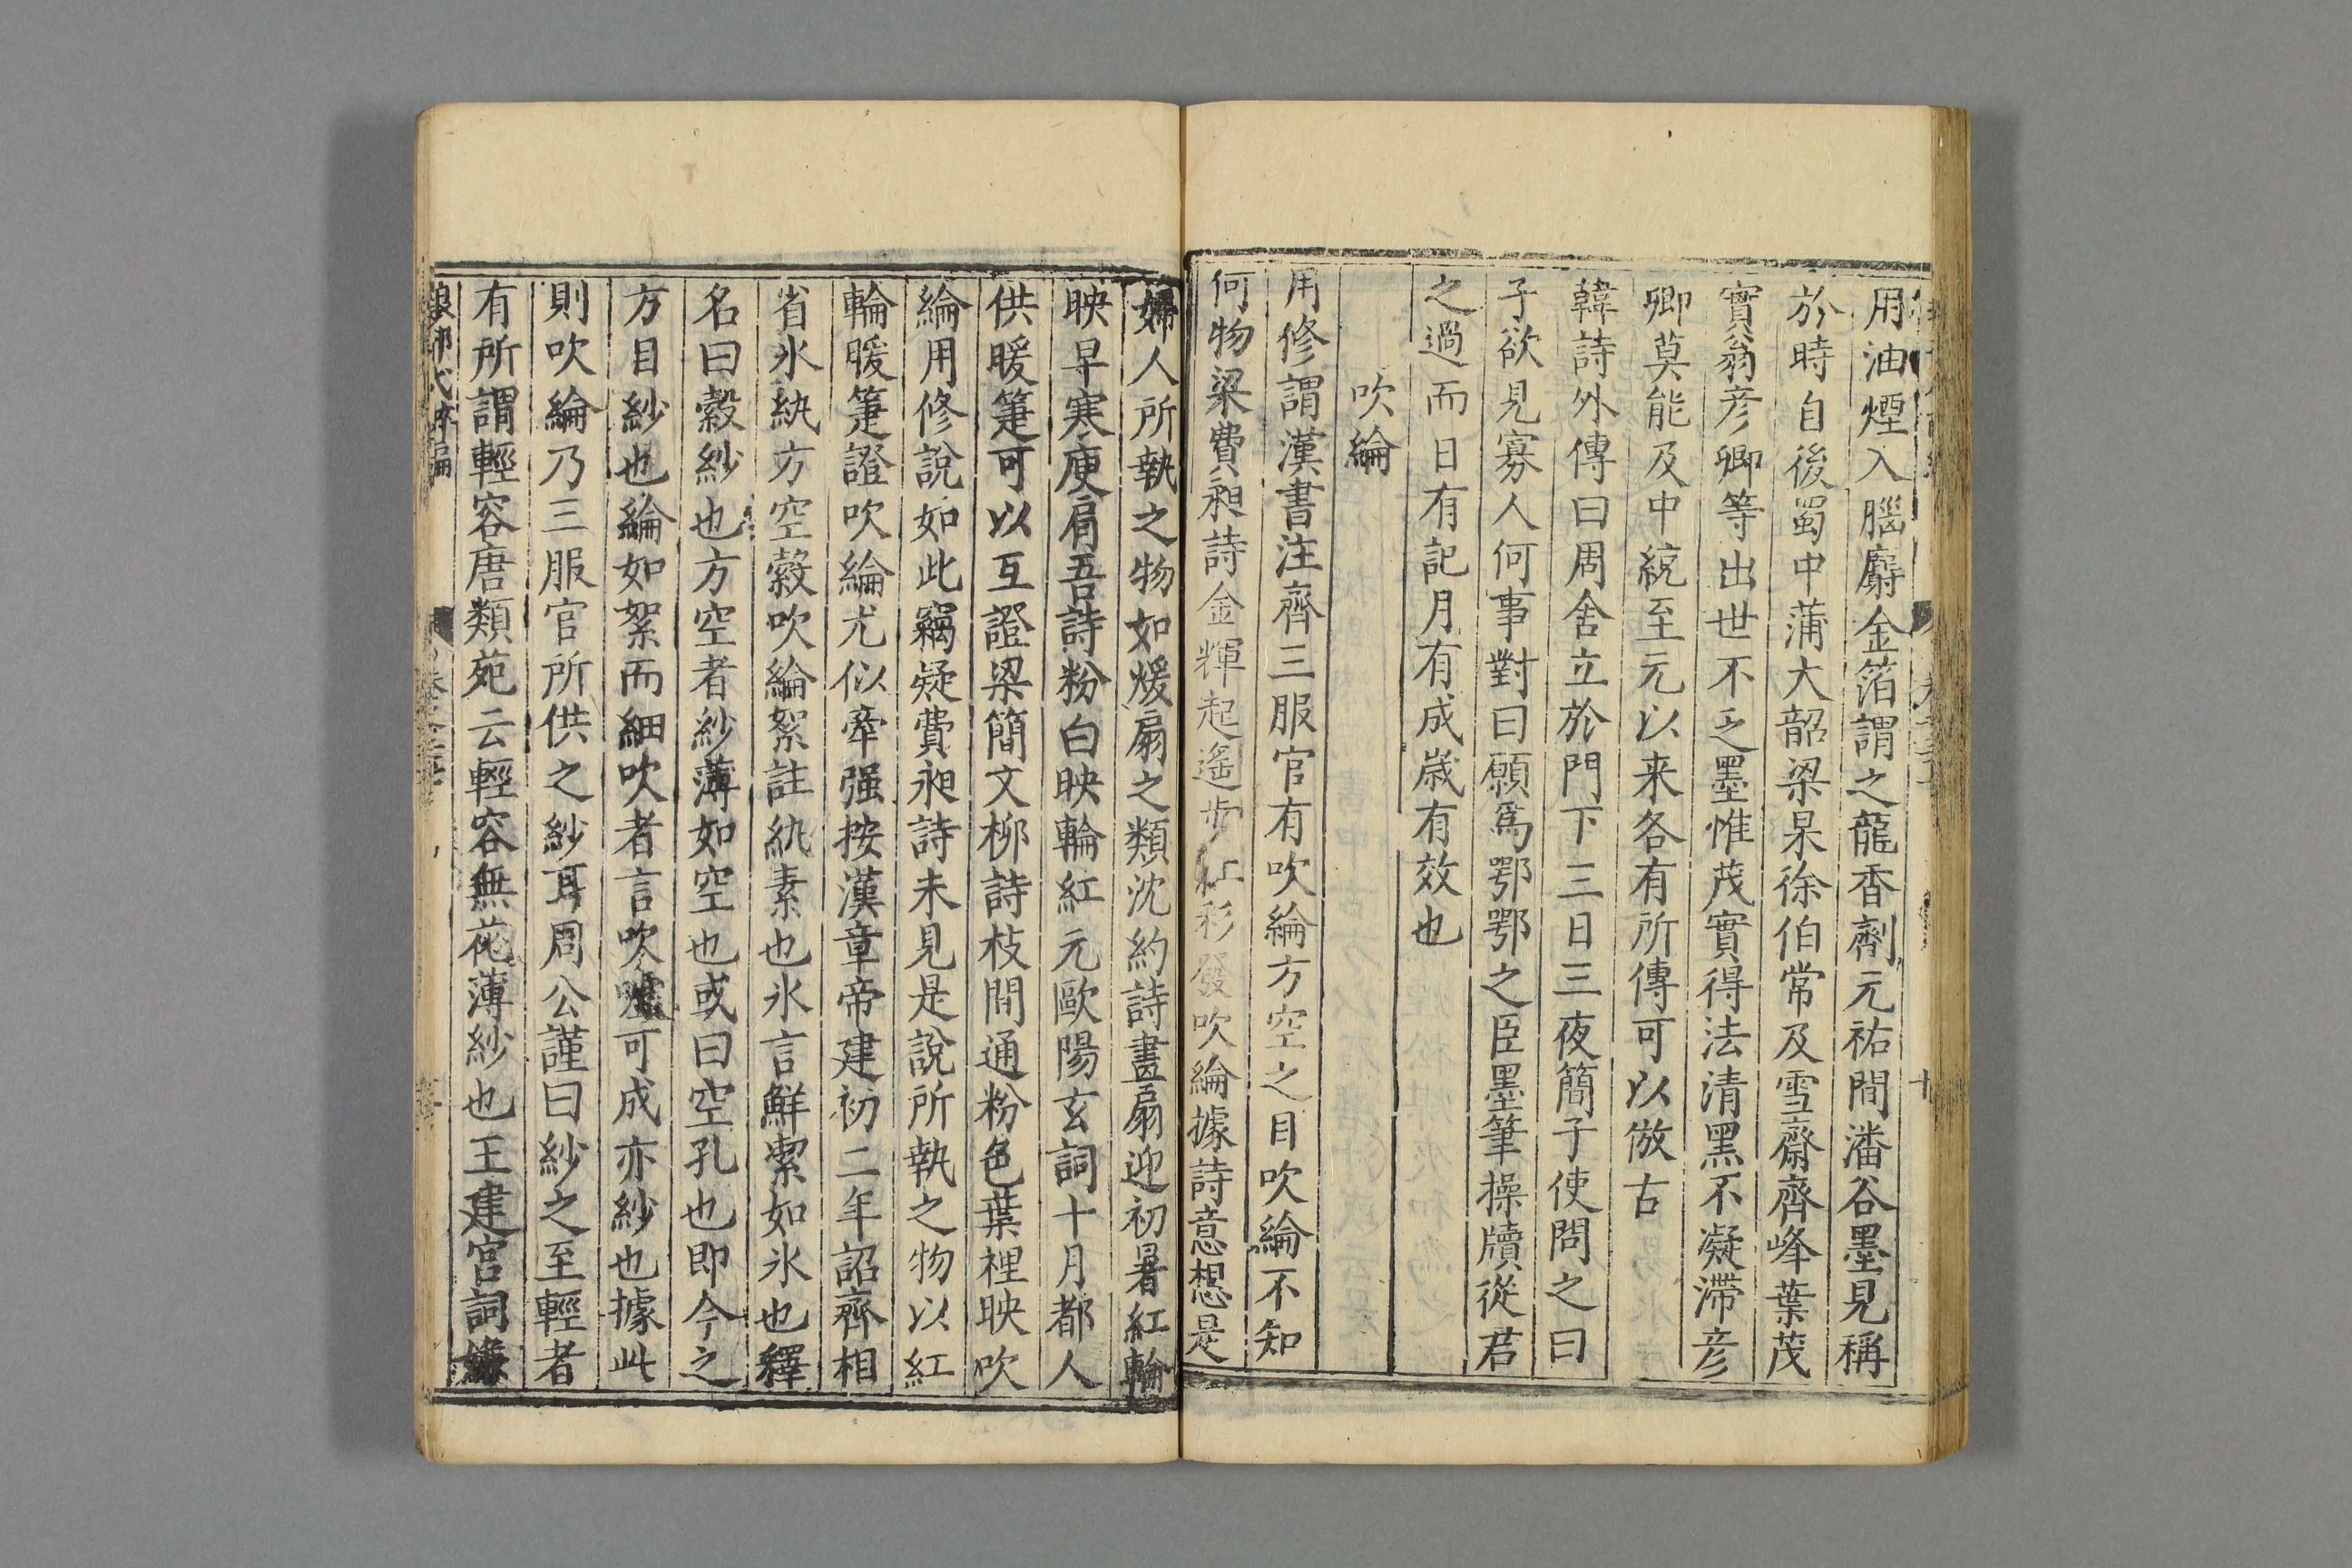 用油煙入腦麝金箔謂之龍香劑元祐間潘谷墨見稱
於時自後蜀中蒲大韶梁杲徐伯常及雪齋齊峰葉茂
實翁彦卿等出世不乏墨惟茂實得法清黑不凝滯彦
卿莫能及中統至元以来各有所傳可以倣古
韓詩外傳曰周舍立於門下三日三夜簡子使問之曰
子欲見寡人何事對曰願爲鄂鄂之臣墨筆操牘從君
之過而日有記月有成歲有效也
吹綸
用修謂漢書注齊三服官有吹綸方空之目吹綸不知
何物梁費昶詩金輝起遙步紅彩發吹綸據詩意想是
婦人所執之物如煖扇之類沈約詩畫扇迎初暑紅輪
映早寒庾肩吾詩粉白映輪紅元歐陽玄詞十月都人
供暖箑可以互證梁簡文柳詩枝間通粉色葉裡映吹
綸用修說如此竊疑費昶詩未見是說所執之物以紅
輪暖箑證吹綸尤似牽强按漢章帝建初二年詔齊相
省氷紈方空縠吹綸絮註紈素也氷言鮮潔如氷也釋
名曰縠紗也方空者紗薄如空也或曰空孔也即今之
方目紗也綸如絮而細吹者言吹噓可成亦紗也據此
則吹綸乃三服官所供之紗耳周公謹曰紗之至輕者
有所謂輕容唐類苑云輕容無花薄紗也王建宫詞嫌
琅邪代醉編